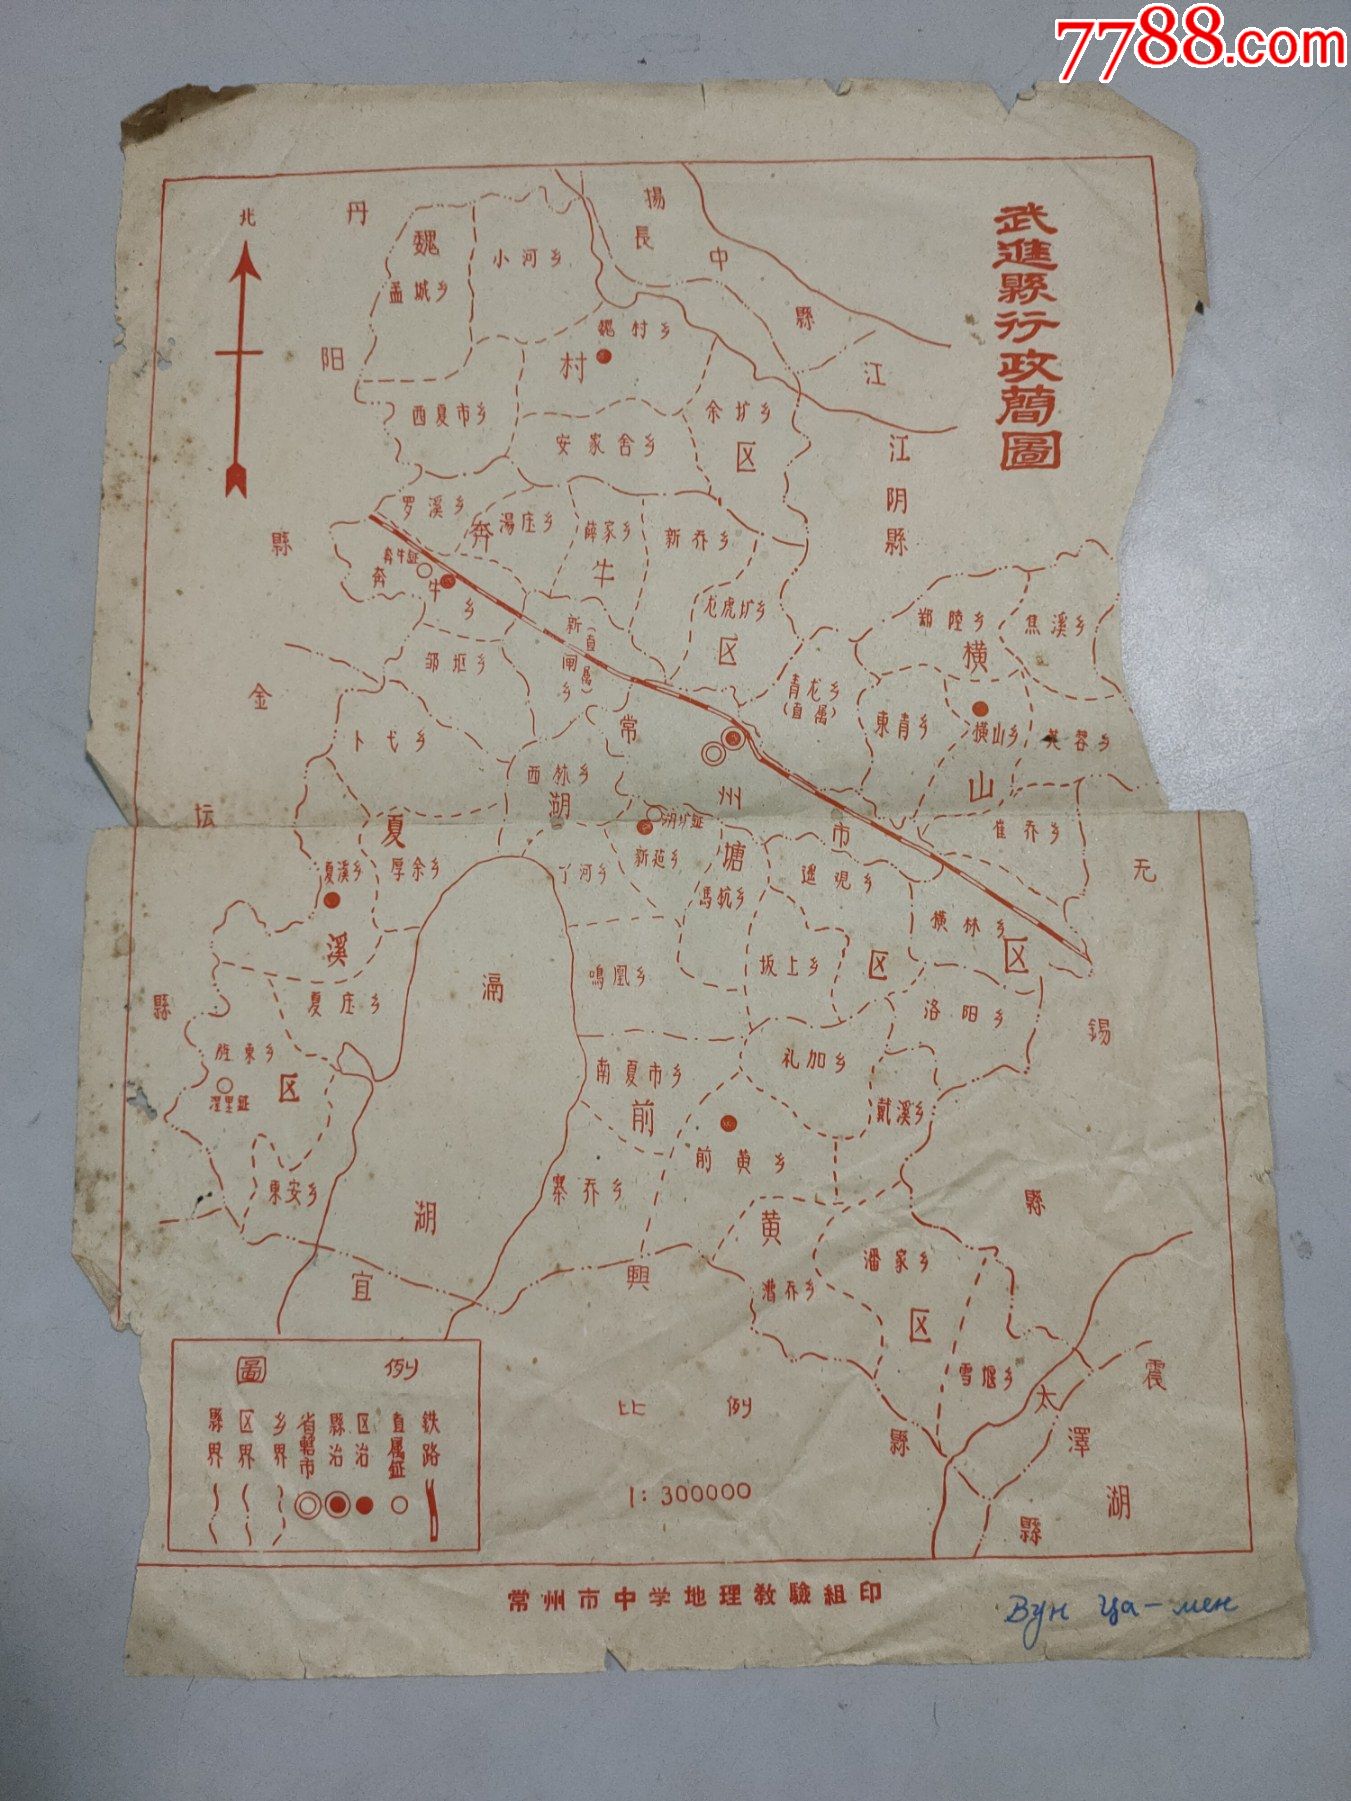 7788.com
武進縣行政簡圖
北
丹
阳
縣
揚
中
縣
長
江
江
阴
縣
魏
村
区
孟城乡
小河乡
魏村乡
西夏市乡
安家舍乡
余圹乡
罗溪乡
湯庄乡
薛家乡
新乔乡
奔
牛
区
奔牛鎮
奔牛乡
龙虎圹乡
新闸乡
(直属)
邹区乡
青龙乡
(直属)
郑陸乡
焦溪乡
横
山
区
東青乡
横山乡
芙蓉乡
崔乔乡
横林乡
金
坛
縣
卜弋乡
西林乡
常
州
市
湖
塘
区
湖圹鎮
新庄乡
馬杭乡
遥观乡
丫河乡
鳴凰乡
坂上乡
洛阳乡
无
錫
縣
夏
溪
区
夏溪乡
厚余乡
夏庄乡
湟里鎮
東安乡
滆
湖
南夏市乡
礼加乡
戴溪乡
前
黄
区
前黄乡
寨乔乡
潘家乡
漕乔乡
雪堰乡
宜
興
縣
太
湖
震
澤
縣
圖例
縣界
区界
乡界
省轄市
縣治
区治
直属鎮
鉄路
比例
1:300000
常州市中学地理教驗組印
Вун Ца-мен